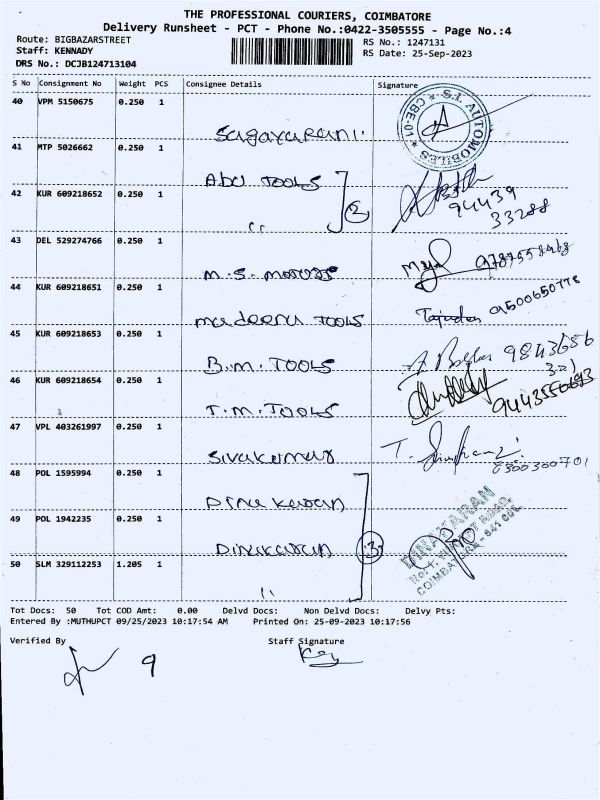 THE PROFESSIONAL COURIERS, COIMBATORE
Delivery Runsheet - PCT - Phone No.:0422-3505555 - Page No.:4
Route: BIGBAZARSTREET
RS No.: 1247131
Staff: KENNADY
RS Date: 25-Sep-2023
DRS No.: DCJB124713104
S No Consignment No Weight PCS Consignee Details Signature
40 VPM 5150675 0.250 1
Sagayarani.
CBE-01 ★ S.T. AUTOMOBILES ★
41 MTP 5026662 0.250 1
Abu TOOLS
42 KUR 609218652 0.250 1
" 2
94439
33288
43 DEL 529274766 0.250 1
M.S. motors
9787558468
44 KUR 609218651 0.250 1
madeena TOOLS
9500650778
45 KUR 609218653 0.250 1
B.M. TOOLS
9843656
321
46 KUR 609218654 0.250 1
T.M. TOOLS
9443550693
47 VPL 403261997 0.250 1
Sivakumar
48 POL 1595994 0.250 1
Dinakaran
49 POL 1942235 0.250 1
Dinakaran 3
DINAKARAN
COIMBATORE - 641 001
50 SLM 329112253 1.205 1
"
Tot Docs: 50 Tot COD Amt: 0.00 Delvd Docs: Non Delvd Docs: Delvy Pts:
Entered By :MUTHUPCT 09/25/2023 10:17:54 AM Printed On: 25-09-2023 10:17:56
Verified By Staff Signature
9